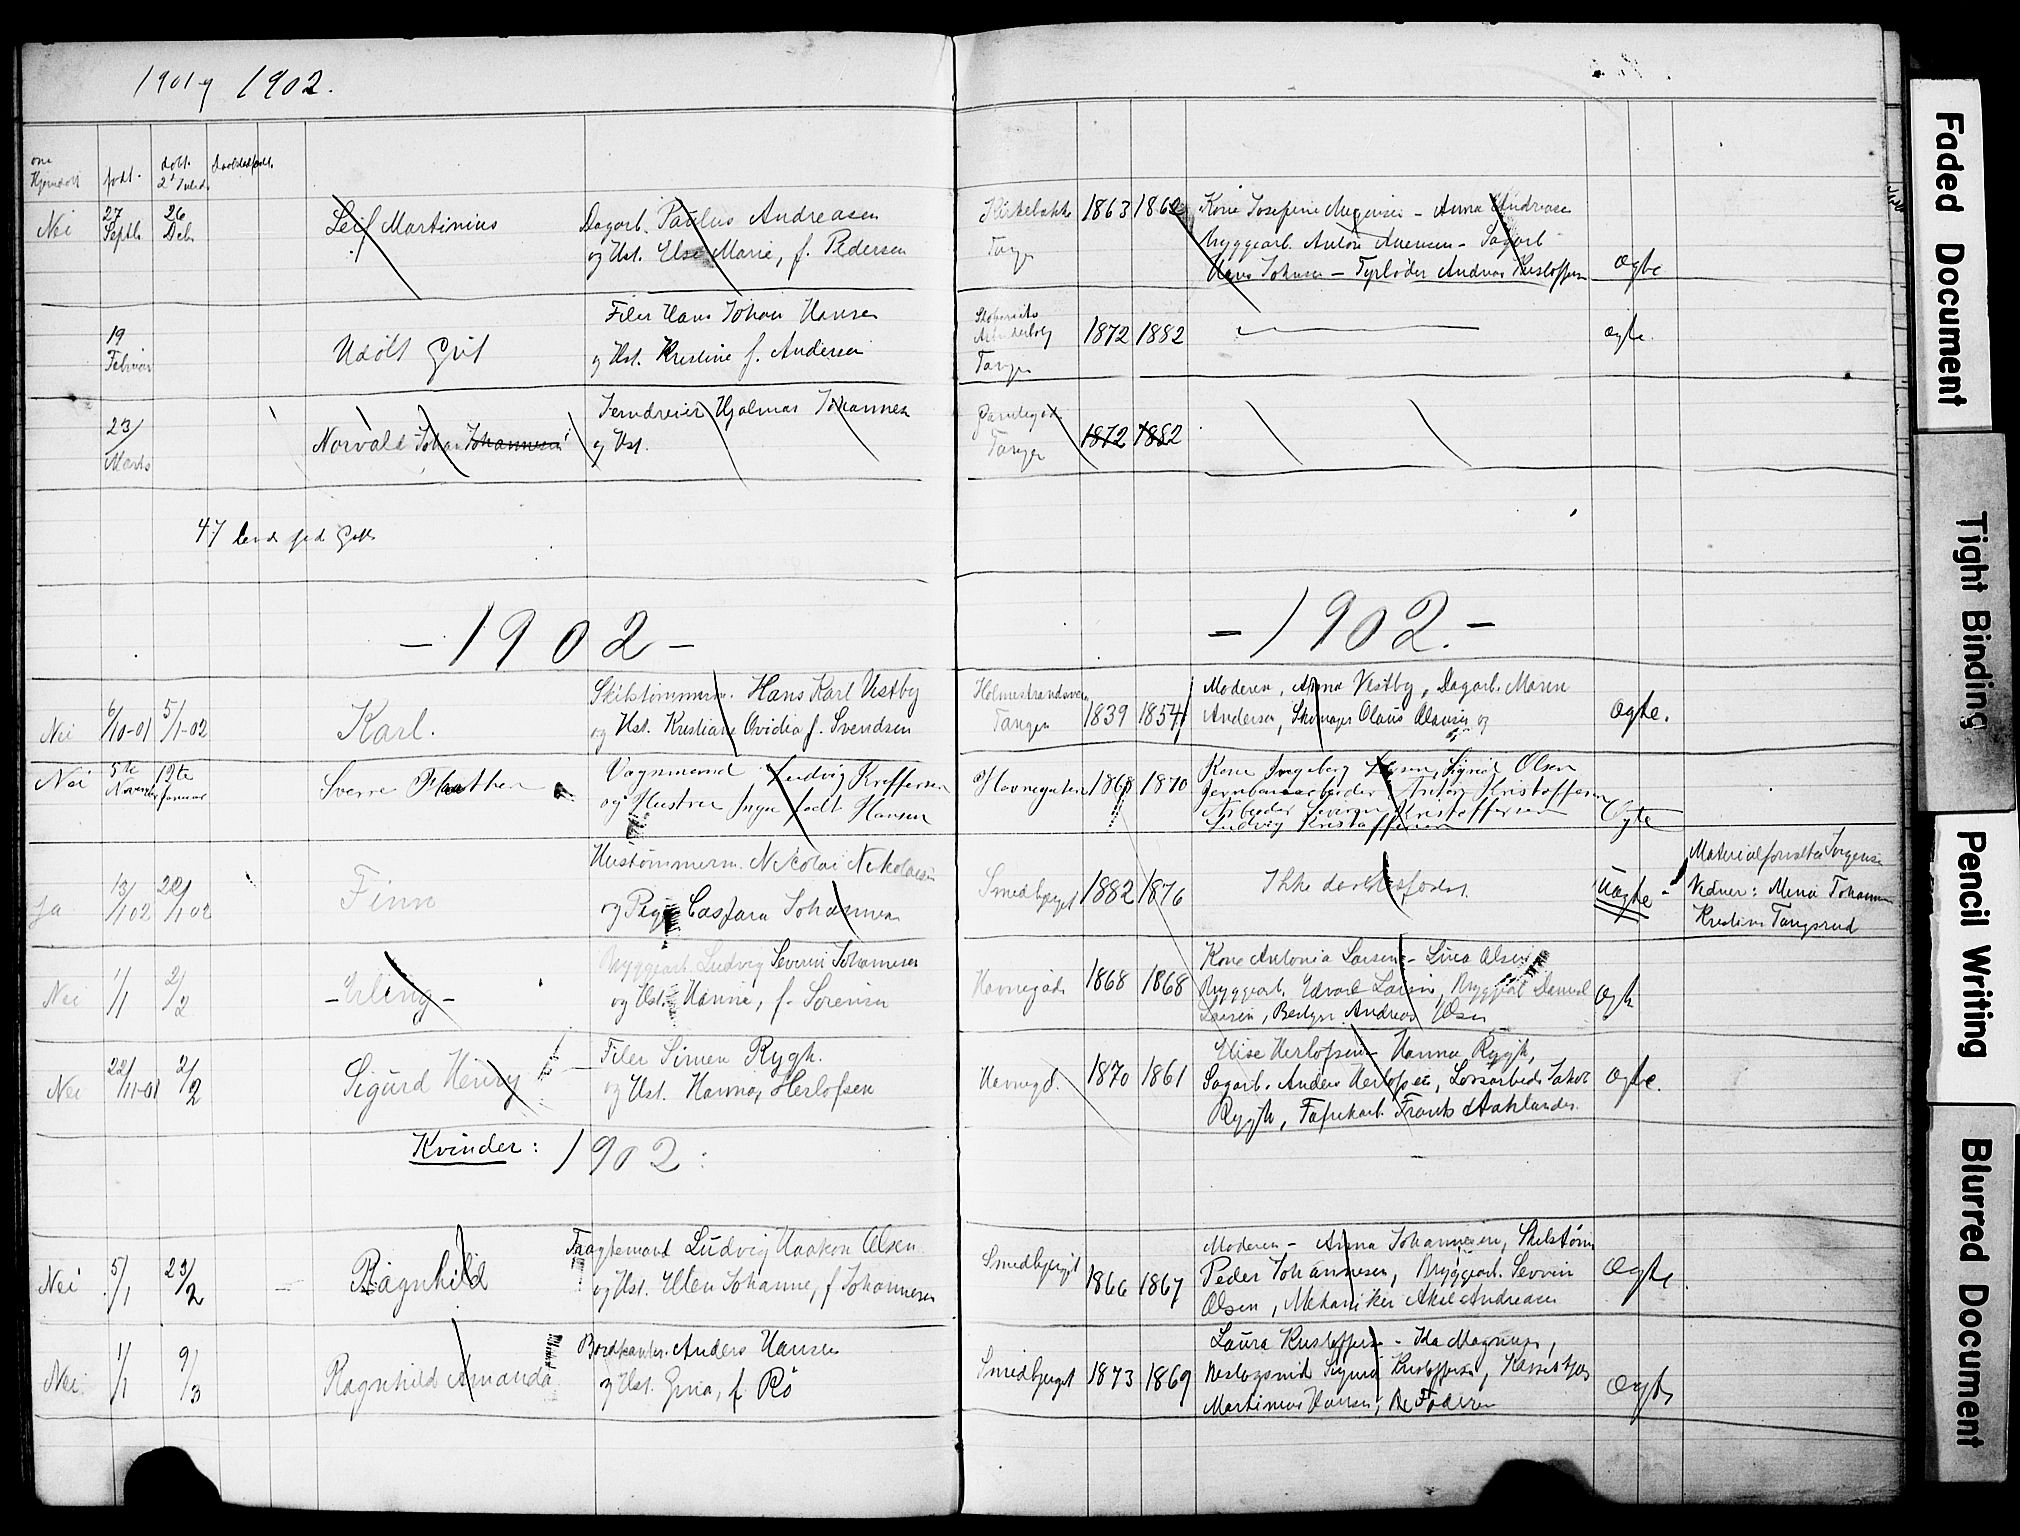 1901 og 1902.
om Hjemdøbt født. døbt. Daabs
Nei 27 Septb. 26 Deb.
Leif Martinius
Dagarb. Paulus Andreasen
og Hst. Else Marie, f. Pedersen
Kirkebakke Tangen 1863 1862
Kone Josefine Mogensen - Anna Andreasen
Bryggearb. Anton - Sagarb.
Hans Johnsen - Fyrbøder Andreas Kristoffersen
Ægte
19 Februar
Udöbt Gut
Filer Hans Johan Hansen
og Hst. Kristine f. Andersen
Tangen 1872 1882
ægte.
23/ Marts
Norvald Johan Johannesen
Jerndreier Hjalmar Johannesen
og Hst.
Tangen 1872 1882
47 levd fød Gutter
- 1902 -
- 1902. -
Nei 6/10-01 5/1-02
Karl.
Skibstømmerm. Hans Karl Vestby
og Hst. Kristiane Ovidia f. Svendsen
Holmestrandsveien Tangen 1839 1854
Moderen, Anna Vestby, Dagarb. Maren
Andersen, Skomager Olaus Clausen og
Ægte.
Nei 5te November 12te Januar
Sverre
Vognmand Ludvig Kristoffersen
og Hustru Inga født Hansen
Havnegaten 1868 1870
Kone Ingeborg Olsen, Sigrid Olsen
Jernbanearbeider Anton Kristoffersen
Arbeider Sivert Kristoffersen
Ludvig Kristoffersen
Ægte
Ja 13/1 02 22/1 02
Finn
Hustømmerm. Nikolai Nikolaisen
og Pige Caspara Johannesen
Smedbjerget 1882 1876
Ikke daarligfødt.
Uægte -
Materialforvalter Jørgensen
Vidner: Mina Johannesen
Kristine Tangerud
Nei 1/1 2/2
- Erling -
Bryggearb. Ludvig Severin Johannesen
og Hst. Hanna, f. Sørensen
Havnegade 1868 1868
Kone Antonia Larsen - Lina Olsen
Bryggearb. Edvard Larsen, Bryggearb. Daniel
Larsen, Bestyrer Andreas Olsen
Ægte
Nei 22/11-01 2/2
Sigurd Henry
Filer Simen Rygh.
og Hst. Hanna, Herlofsen
Havnegd. 1870 1861
Elise Herlofsen - Hanna Rygh,
Sagarb. Anders Herlofsen, Løsarbeider Jakob
Rygh, Fabrikarb. Frants Aahlander.
Ægte.
Kvinder: 1902:
Nei 5/1 23/2
Ragnhild
Fragtemand Ludvig Haakon Olsen
og Hst. Ellen Johanne, f. Johannesen
Smedbjerget 1866 1867
Moderen - Anna Johannesen, Skibstøm.
Peder Johannesen, Bryggearb. Severin
Olsen, Mekaniker Aksel Andreasen
Ægte.
Nei. 1/1 9/3
Ragnhild Amanda
Bordkanter. Anders Hansen
og Hst. Gina, f. Rø
Smedbjerget 1873 1869
Laura Kristoffersen - Ida Magnussen,
Sigurd Kristoffersen,
Martinius Hansen, Faderen
Ægte
Faded Document
Tight Binding
Pencil Writing
Blurred Document